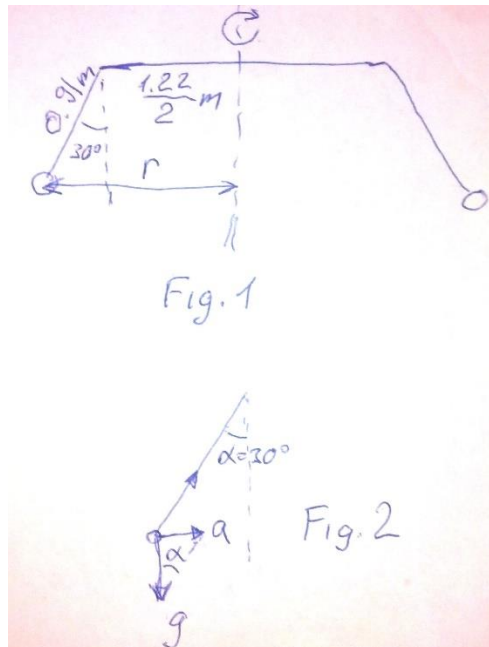 0.91m
1.22
2 m
30°
r
Fig. 1
α=30°
a
Fig. 2
α
g